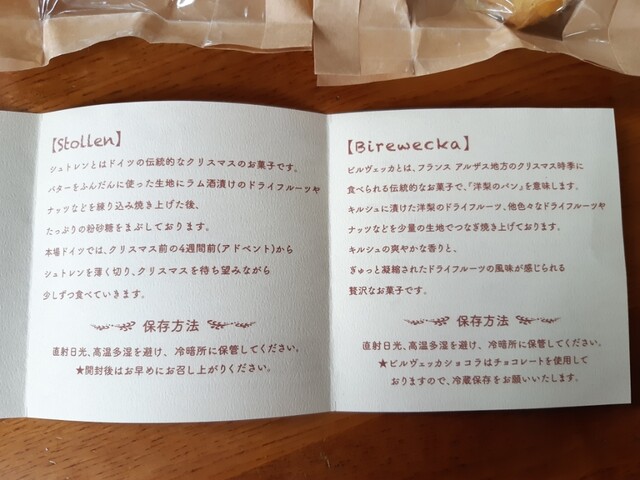 【Stollen】
シュトレンとはドイツの伝統的なクリスマスのお菓子です。
バターをふんだんに使った生地にラム酒漬けのドライフルーツや
ナッツなどを練り込み焼き上げた後、
たっぷりの粉砂糖をまぶしております。
本場ドイツでは、クリスマス前の4週間前(アドベント)から
シュトレンを薄く切り、クリスマスを待ち望みながら
少しずつ食べていきます。
保存方法
直射日光、高温多湿を避け、冷暗所に保管してください。
★開封後はお早めにお召し上がりください。
【Birewecka】
ビルヴェッカとは、フランス アルザス地方のクリスマス時季に
食べられる伝統的なお菓子で、「洋梨のパン」を意味します。
キルシュに漬けた洋梨のドライフルーツ、他色々なドライフルーツや
ナッツなどを少量の生地でつなぎ焼き上げております。
キルシュの爽やかな香りと、
ぎゅっと凝縮されたドライフルーツの風味が感じられる
贅沢なお菓子です。
保存方法
直射日光、高温多湿を避け、冷暗所に保管してください。
★ビルヴェッカショコラはチョコレートを使用して
おりますので、冷蔵保存をお願いいたします。